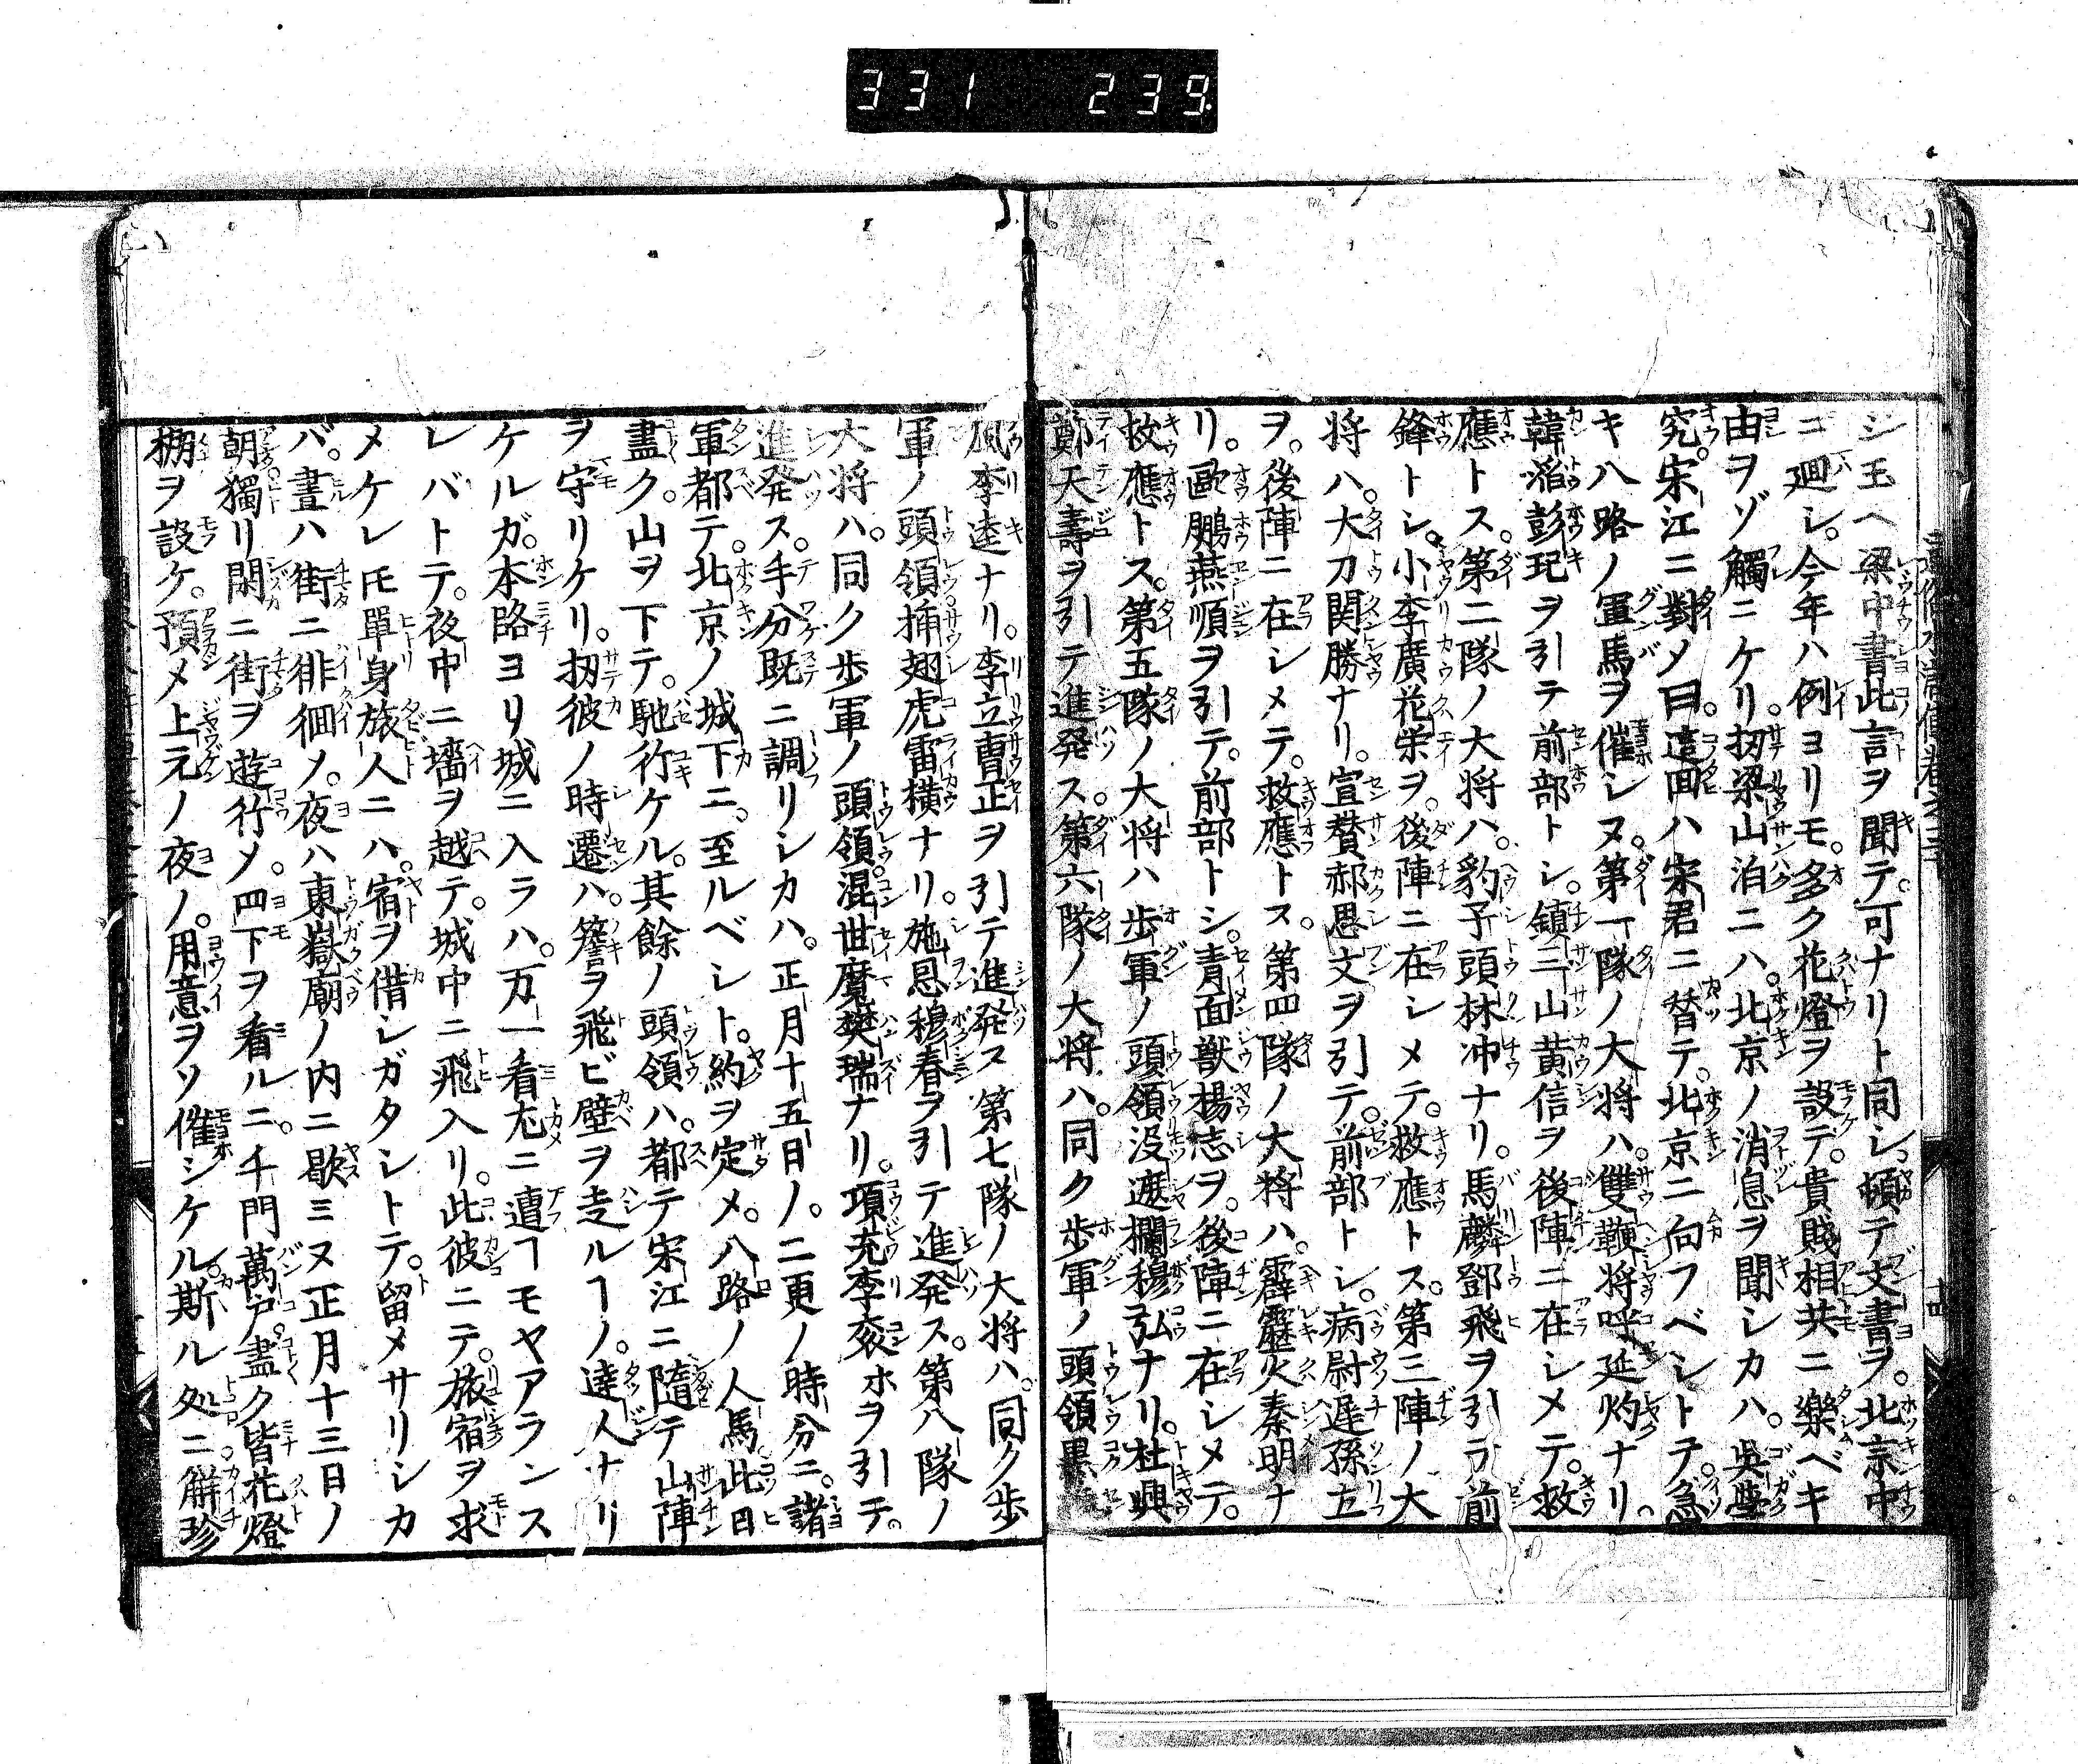 331 239.
シ玉ヘ梁中書此言ヲ聞テ。可ナリト同シ、頓テ文書ヲ。北京中
ニ廻シ。今年ハ例ヨリモ。多ク花燈ヲ設テ。貴賤相共ニ樂ベキ
由ヲゾ觸ニケリ。扨梁山泊ニハ。北京ノ消息ヲ聞シカハ。吳學
究。宋江ニ對メ曰。這回ハ宋君ニ替テ。北京ニ向フベシトテ。急
キ八路ノ軍馬ヲ催シヌ。第一隊ノ大将ハ。雙鞭将呼延灼ナリ。
韓滔彭玘ヲ引テ前部トシ。鎮三山黄信ヲ後陣ニ在シメテ。救
應トス。第二隊ノ大将ハ。豹子頭林冲ナリ。馬麟鄧飛ヲ引テ前
鋒トシ。小李廣花栄ヲ。後陣ニ在シメテ。救應トス。第三陣ノ大
将ハ。大刀関勝ナリ。宣賛郝思文ヲ引テ。前部トシ。病尉遲孫立
ヲ。後陣ニ在シメテ。救應トス。第四隊ノ大将ハ。霹靂火秦明ナ
リ。歐鵬燕順ヲ引テ。前部トシ。青面獣楊志ヲ。後陣ニ在シメテ。
救應トス。第五隊ノ大将ハ歩軍ノ頭領没遮欄穆弘ナリ。杜興
鄭天壽ヲ引テ進発ス。第六隊ノ大将ハ。同ク歩軍ノ頭領黒
風李逵ナリ。李立曹正ヲ引テ進発ス第七隊ノ大将ハ。同ク歩
軍ノ頭領揷翅虎雷横ナリ。施恩穆春ヲ引テ進発ス。第八隊ノ
大将ハ。同ク歩軍ノ頭領混世魔樊瑞ナリ。項充李袞ホヲ引テ。
進発ス。手分既ニ調リシカハ。正月十五日ノ。二更ノ時分ニ。諸
軍都テ。北京ノ城下ニ。至ルベシト。約ヲ定メ。八路ノ人馬。此日
盡ク。山ヲ下テ。馳行ケル。其餘ノ頭領ハ。都テ宋江ニ隨テ山陣
ヲ守リケリ。扨彼ノ時遷ハ。簷ヲ飛ビ壁ヲ走ルヿノ。達人ナリ
ケルガ。本路ヨリ城ニ入ラハ。万一看尤ニ遭ヿモヤアランス
レバトテ。夜中ニ墻ヲ越テ。城中ニ飛入リ。此彼ニテ。旅宿ヲ求
メケレ𪜈單身旅人ニハ。宿ヲ借シガタシトテ。留メサリシカ
バ。晝ハ街ニ徘徊メ。夜ハ東嶽廟ノ内ニ歇ミヌ正月十三日ノ
朝獨リ閑ニ街ヲ遊行メ。四下ヲ看ルニ。千門萬戸。盡ク皆花燈
棚ヲ設ケ。預メ上元ノ夜ノ。用意ヲソ催シケル。斯ル処ニ。解珍